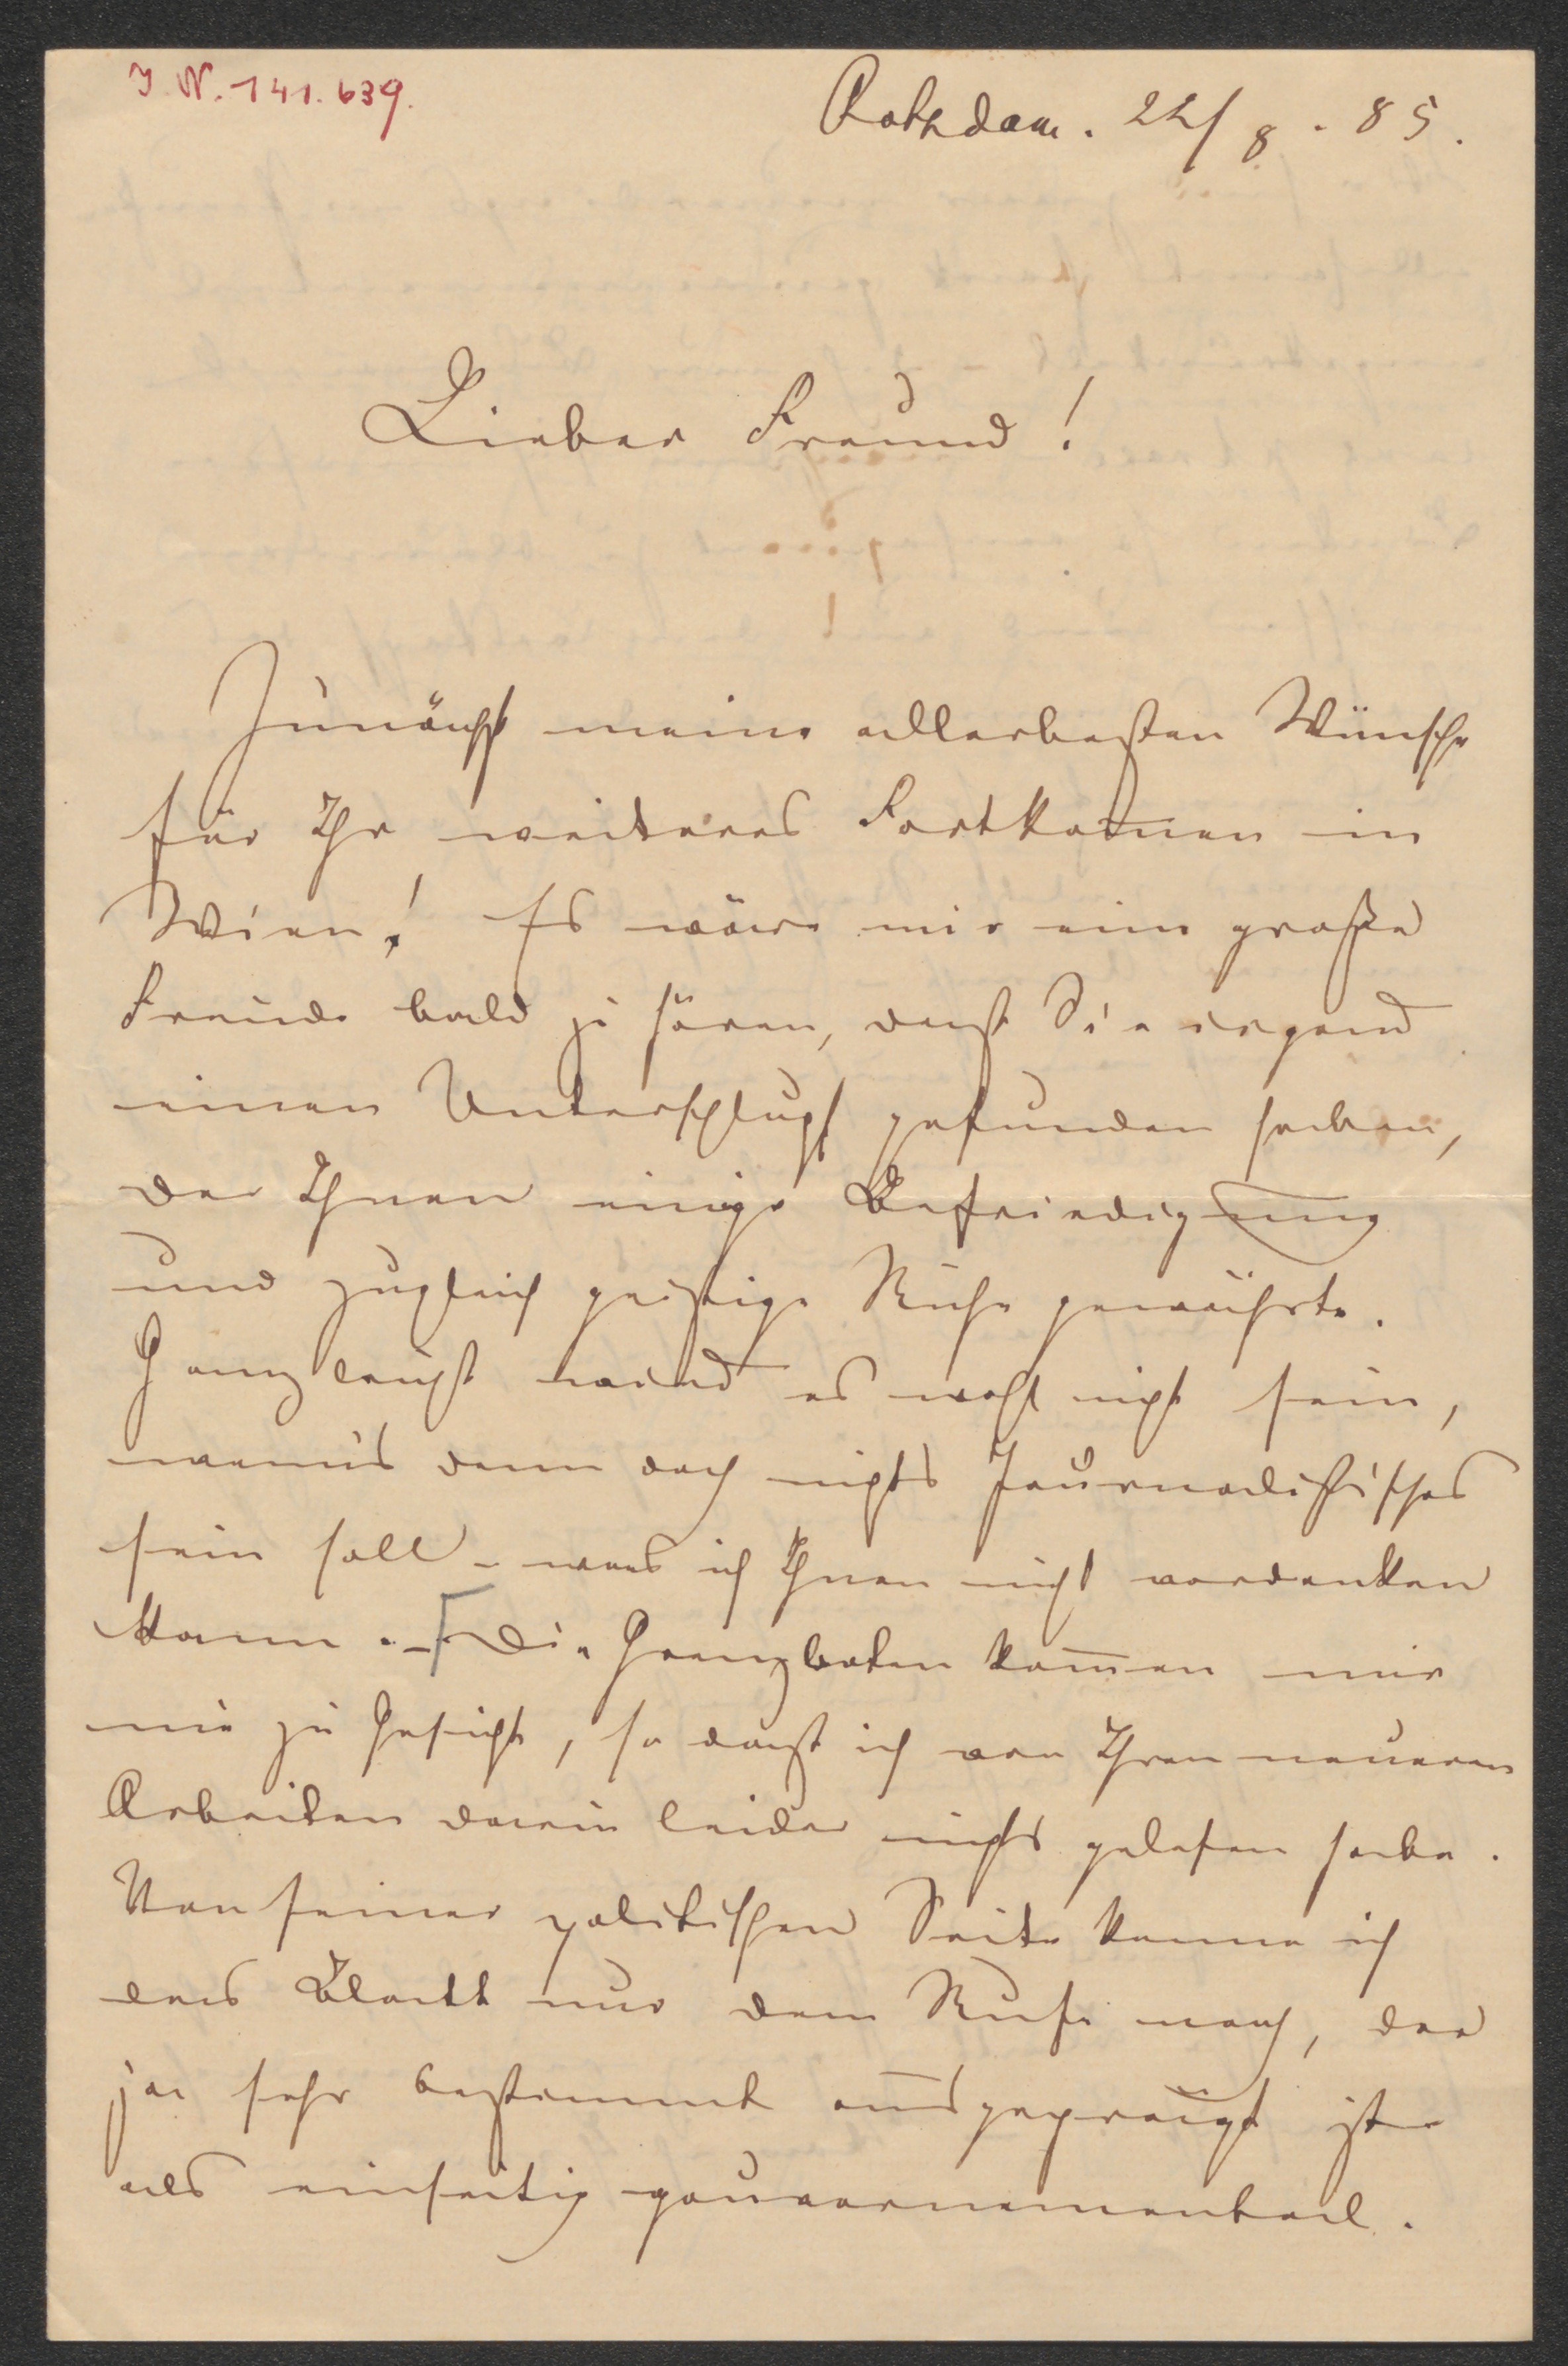 I. N. 141.639.
Potsdam. 22/8. 85.
Lieber Freund!
Zunächst meine allerbesten Wünsche
für Ihr weiteres Fortkom̄en in
Wien! Es wäre mir eine große
Freude bald zu hören, dass Sie irgend
einen Unterschlupf gefunden haben,
der Ihnen einige Befriedigung
und zugleich geistige Ruhe gewährte.
Ganz leicht wird es wohl nicht sein,
wenn's denn doch nichts Journalistisches
sein soll – was ich Ihnen nicht verdenken
kann. – [Die Grenzboten kom̄en mir
nie zu Gesicht, so dass ich von Ihren neueren
Arbeiten darin leider nichts gelesen habe.
Von seiner politischen Seite kenne ich
das Blatt nur dem Rufe nach, der
ja sehr bestimmt ausgeprägt ist –
als einseitig gouvernemental.